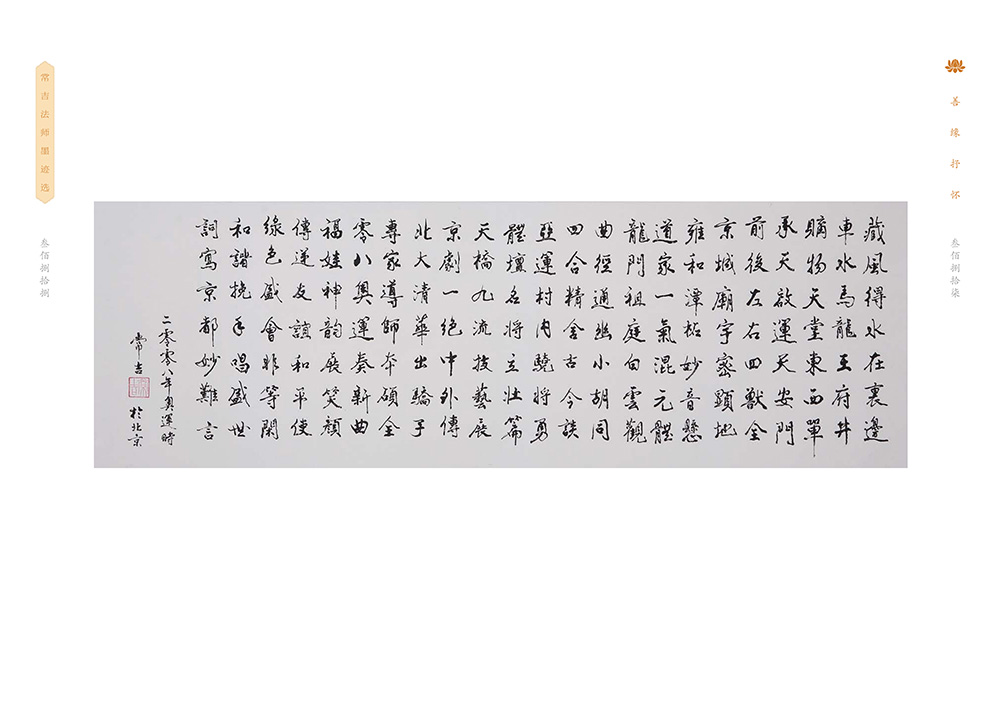 善缘抒怀
叁佰捌拾柒
藏風得水在裏邊
車水馬龍王府井
購物天堂東西單
承天啟運天安門
前後左右四獸全
京城廟宇密顯地
雍和潭柘妙音懸
道家一氣混元體
龍門祖庭白雲觀
曲徑通幽小胡同
四合精舍古今談
亞運村內驍將勇
體壇名將立壯篇
天橋九流技藝展
京劇一絕中外傳
北大清華出驕子
專家導師本碩全
零八奧運奏新曲
福娃神韵展笑顏
傳遞友誼和平使
綠色盛會非等閑
和諧挽手唱盛世
詞寫京都妙難言
二零零八年奧運時
常吉
於北京
常吉法师墨迹选
叁佰捌拾捌